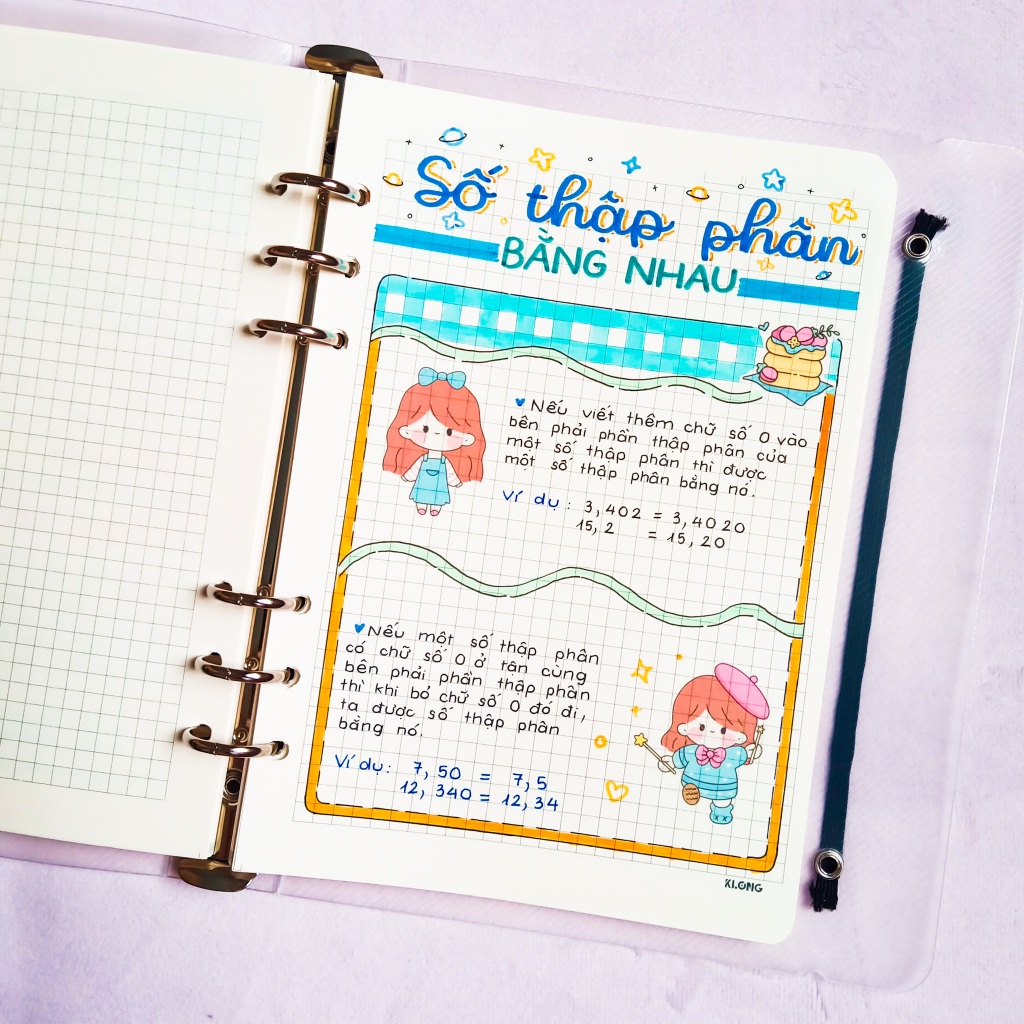 Số thập phân
BẰNG NHAU
Nếu viết thêm chữ số 0 vào
bên phải phần thập phân của
một số thập phân thì được
một số thập phân bằng nó.
Ví dụ : 3,402 = 3,4020
15,2 = 15,20
Nếu một số thập phân
có chữ số 0 ở tận cùng
bên phải phần thập phân
thì khi bỏ chữ số 0 đó đi,
ta được số thập phân
bằng nó.
Ví dụ : 7,50 = 7,5
12,340 = 12,34
KLONG